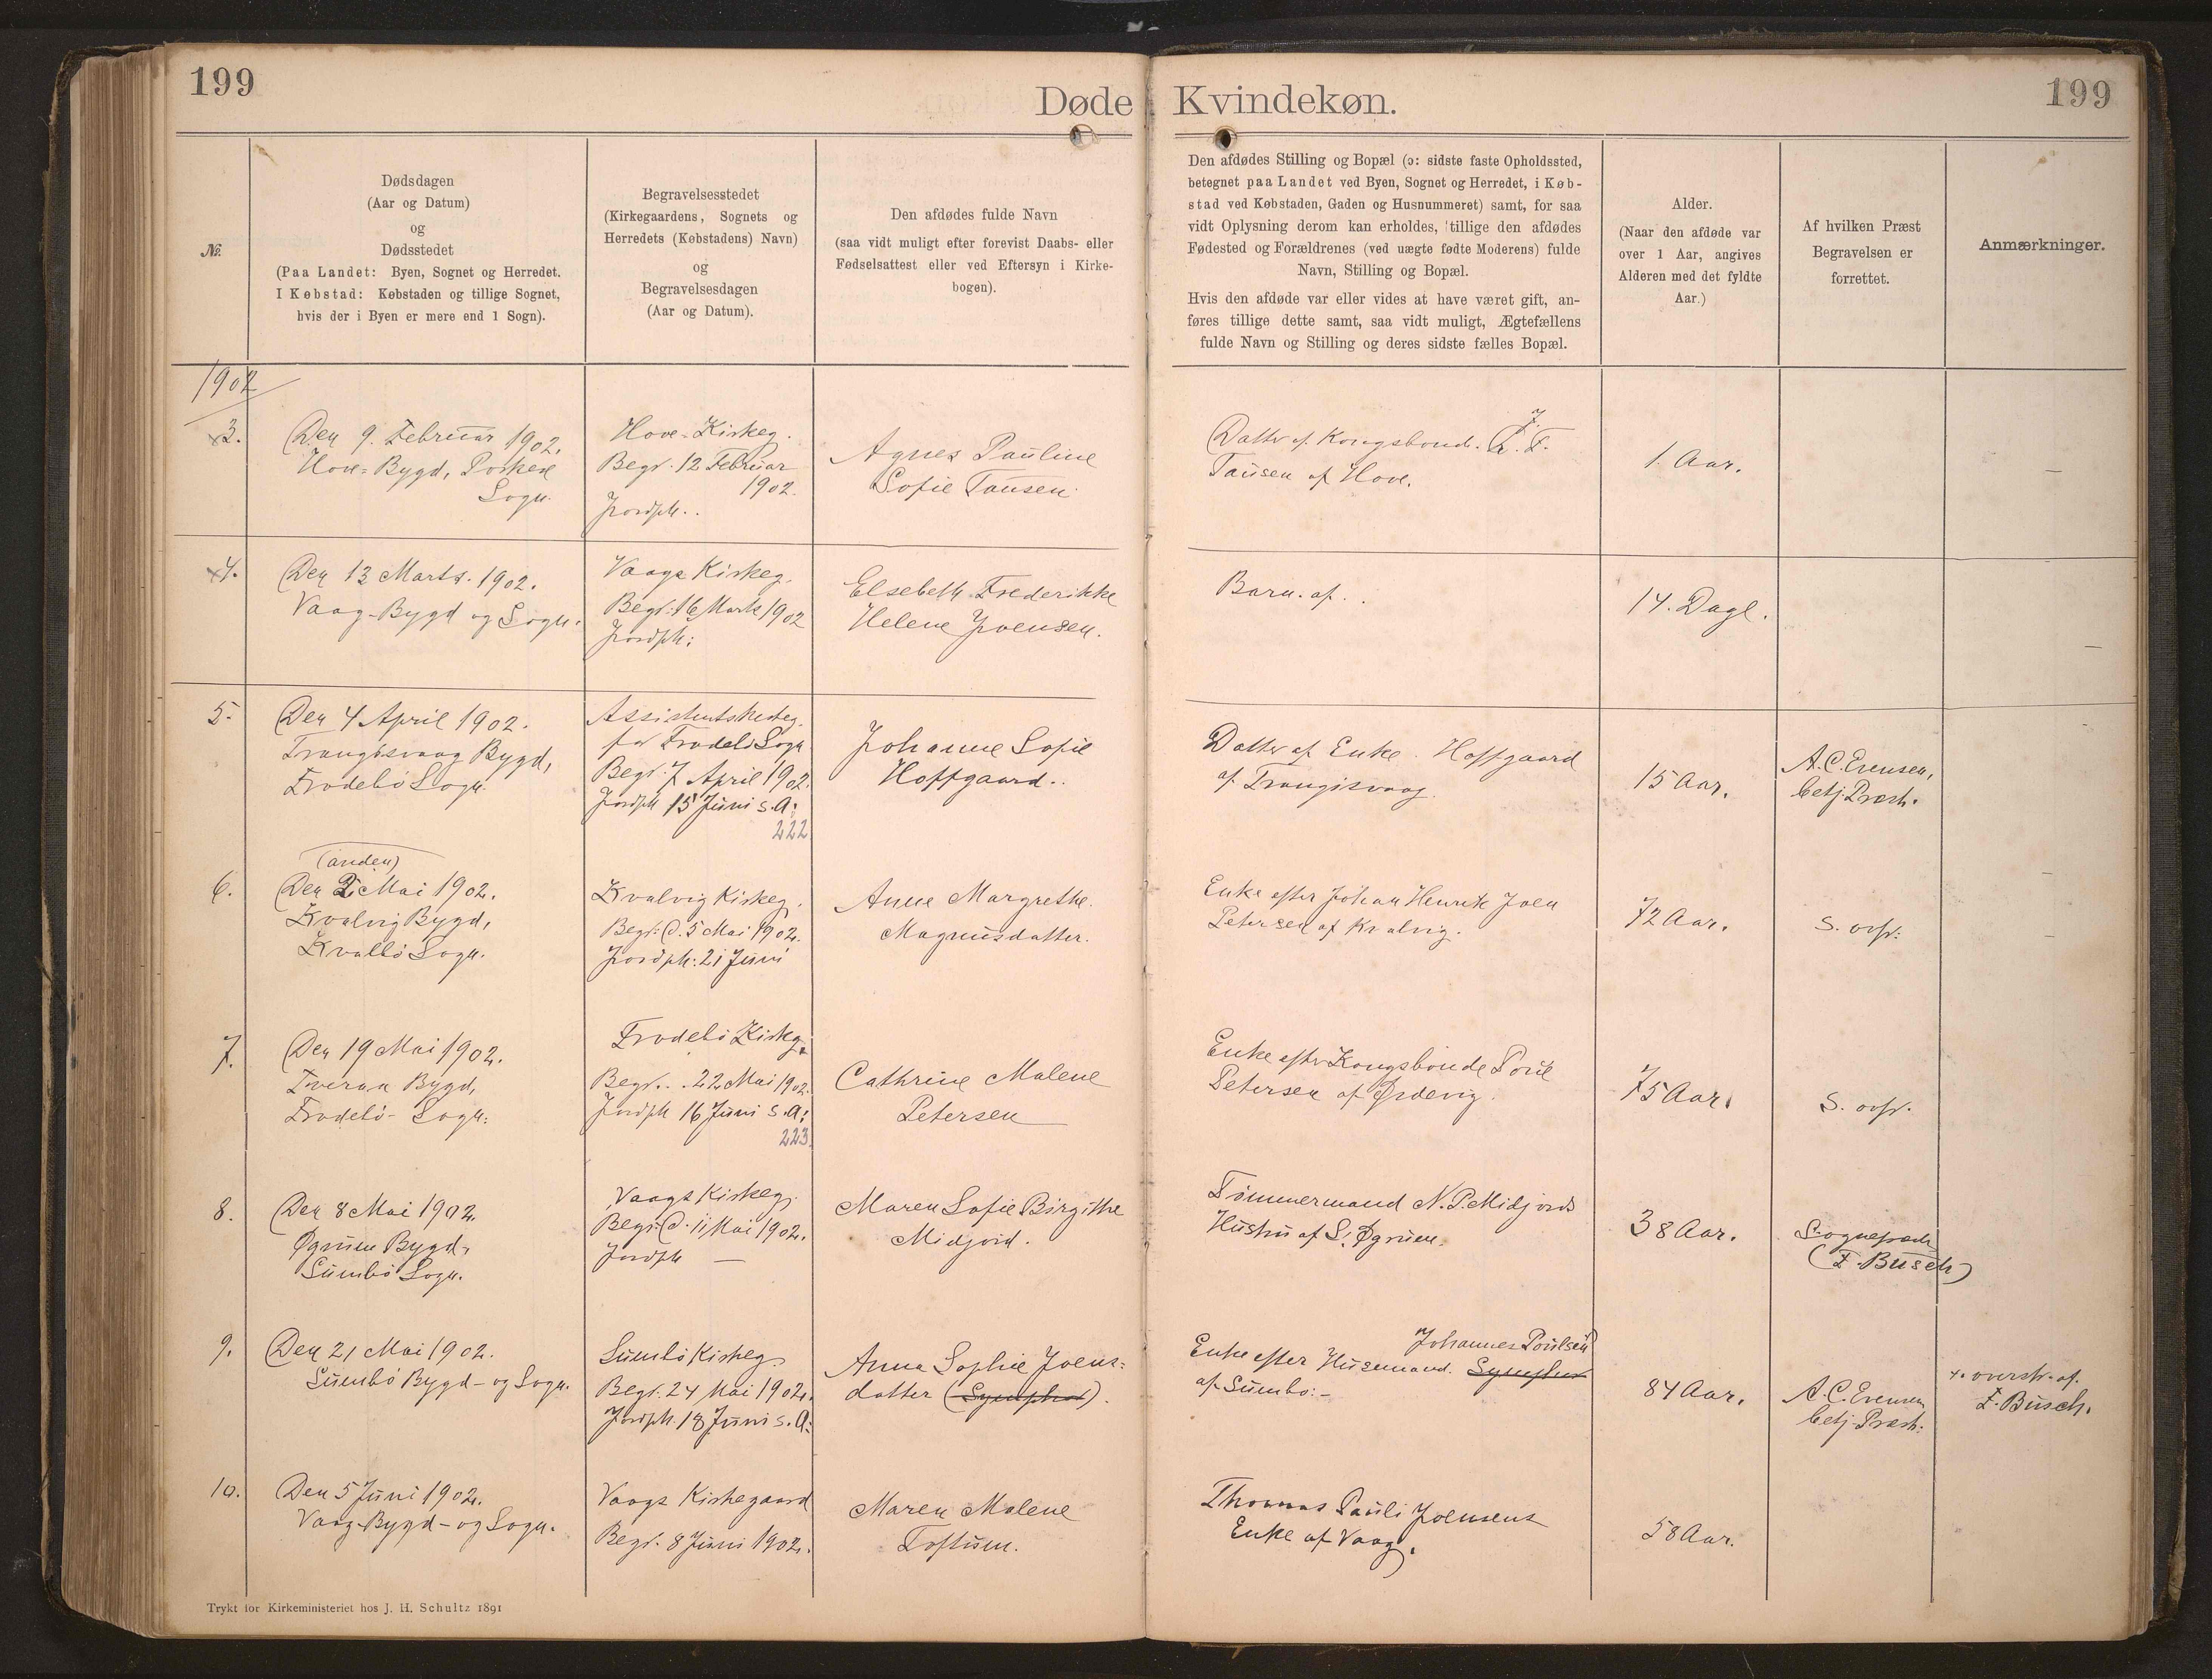 199
Døde Kvindekøn.
199
№.
Dødsdagen
(Aar og Datum)
og
Dødsstedet
(Paa Landet: Byen, Sognet og Herredet.
I Købstad: Købstaden og tillige Sognet,
hvis der i Byen er mere end 1 Sogn).
Begravelsesstedet
(Kirkegaardens, Sognets og
Herredets (Købstadens) Navn)
og
Begravelsesdagen
(Aar og Datum).
Den afdødes fulde Navn
(saa vidt muligt efter forevist Daabs- eller
Fødselsattest eller ved Eftersyn i Kirke-
bogen).
Den afdødes Stilling og Bopæl (ɔ: sidste faste Opholdssted,
betegnet paa Landet ved Byen, Sognet og Herredet, i Køb-
stad ved Købstaden, Gaden og Husnummeret) samt, for saa
vidt Oplysning derom kan erholdes, tillige den afdødes
Fødested og Forældrenes (ved uægte fødte Moderens) fulde
Navn, Stilling og Bopæl.
Hvis den afdøde var eller vides at have været gift, an-
føres tillige dette samt, saa vidt muligt, Ægtefællens
fulde Navn og Stilling og deres sidste fælles Bopæl.
Alder.
(Naar den afdøde var
over 1 Aar, angives
Alderen med det fyldte
Aar.)
Af hvilken Præst
Begravelsen er
forrettet.
Anmærkninger.
1902
3.
Den 9. Februar 1902.
Hove-Bygd, Porkere
Sogn.
Hove-Kirkeg.
Begr. 12 Februar
1902.
Jordpk..
Agnes Pauline
Sofie Tausen
J.
Datter af Kongsbond. F.
Tausen af Hove.
1. Aar.
—
4.
Den 13 Marts. 1902.
Vaag-Bygd og Sogn.
Vaags Kirkeg.
Begr. 16 Marts 1902
Jordpk:
Elsebeth Frederikke
Helene Joensen.
Barn. af..
14. Dage.
—
5.
Den 4 April 1902.
Trangisvaag Bygd,
Frodebö Sogn.
Assistentskirkeg.
for Frodebö Sogn
Begr. 7 April 1902.
Jordpk 15 Juni s.A:
222
Johanne Sofie
Hoffgaard..
Datter af Enke. Hoffgaard
af Trangisvaag.
15 Aar.
A.C. Evensen,
betj. Præst.
—
6.
(anden)
Den 2. Mai 1902.
Kvalvig Bygd,
Kvalbö Sogn.
Kvalvig Kirkeg.
Begr: D. 5 Mai 1902.
Jordpk: 21 Juni
Anne Margrethe.
Magnusdatter.
Enke efter Johan Henrik Joen
Petersen af Kvalvig.
72 Aar.
S. ovfr:
—
7.
Den 19 Mai 1902.
Tveraa Bygd,
Frodebö- Sogn:
Frodebö Kirkeg.
Begr... 22 Mai 1902.
Jordpk 16 Juni s.A:
223.
Cathrine Malene
Petersen
Enke efter Kongsbonde Poul
Petersen af Ørdevig.
75 Aar.
S. ovfr.
8.
Den 8 Mai 1902.
Øgrum Bygd,
Sumbö Sogn.
Vaags Kirkeg.
Begr: D. 11 Mai 1902.
Jordpk —
Maren Sofie Birgithe
Midjord.
Tömmermand N.P. Midjords
Hustru af S. Øgrum.
38 Aar.
Sognepræst
(F. Busch)
9.
Den 21 Mai 1902.
Sumbö Bygd- og Sogn.
Sumbö Kirkeg.
Begr. 24 Mai 1902.
Jordpk. 18 Juni s.A:
Anna Sophie Joens-
datter
Johannes Poulsen
Enke efter Husmand.
af Sumbo:-
84 Aar.
A.C. Evensen
betj. Præst:
overstr. af.
F. Busch.
10.
Den 5 Juni 1902.
Vaag-Bygd- og Sogn.
Vaags Kirkegaard
Begr. 8 Juni 1902.
Maren Malene
Toftum.
Thomas Pauli Joensens
Enke af Vaag.
58 Aar.
Trykt for Kirkeministeriet hos J. H. Schultz 1891